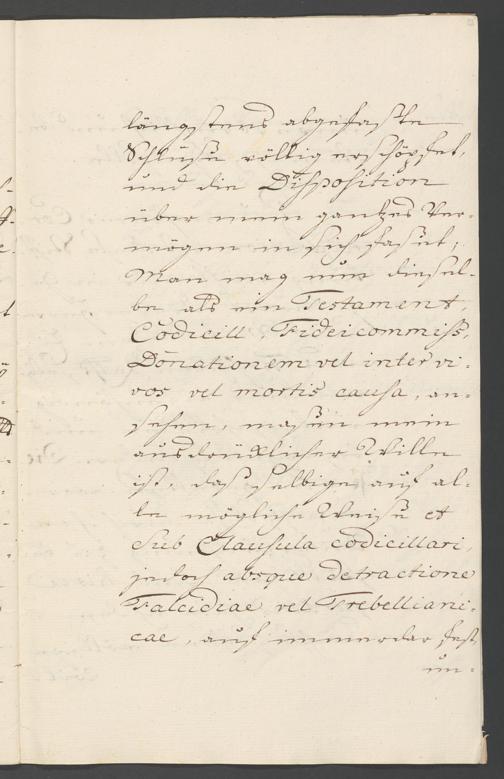 längstens abgefaste
Schlüße völlig erschöpfet,
und die Disposition
über mein gantzes Ver-
mögen in sich faßet,
Man mag nun diesel-
be als ein Testament,
Codicill, Fideicommiss,
Donationem vel inter vi-
vos vel mortis causa, an-
sehen, maßen mein
ausdrücklicher Wille
ist, daß selbige auf al-
le mögliche Weise et
sub Clausula codicillari,
jedoch absque detractione
Falcidiae vel Trebelliani-
cae, auf immerdar fest
un-